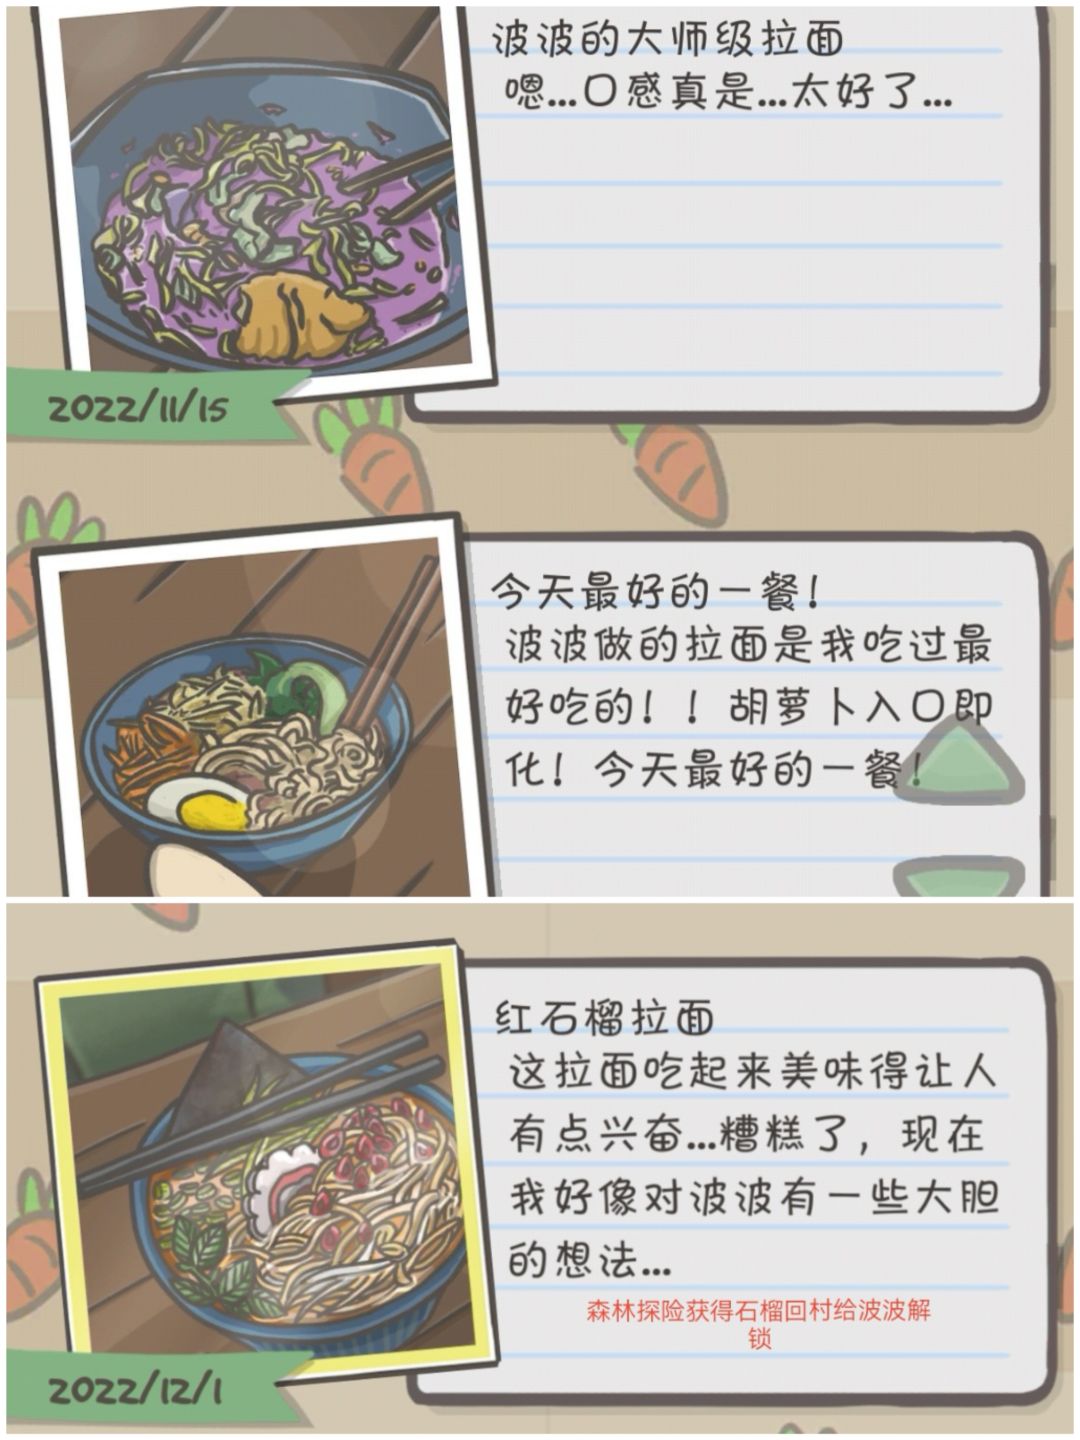 波波的大师级拉面
嗯...口感真是...太好了...
2022/11/15
今天最好的一餐！
波波做的拉面是我吃过最
好吃的！！胡萝卜入口即
化！今天最好的一餐！
红石榴拉面
这拉面吃起来美味得让人
有点兴奋...糟糕了，现在
我好像对波波有一些大胆
的想法...
森林探险获得石榴回村给波波解
锁
2022/12/1